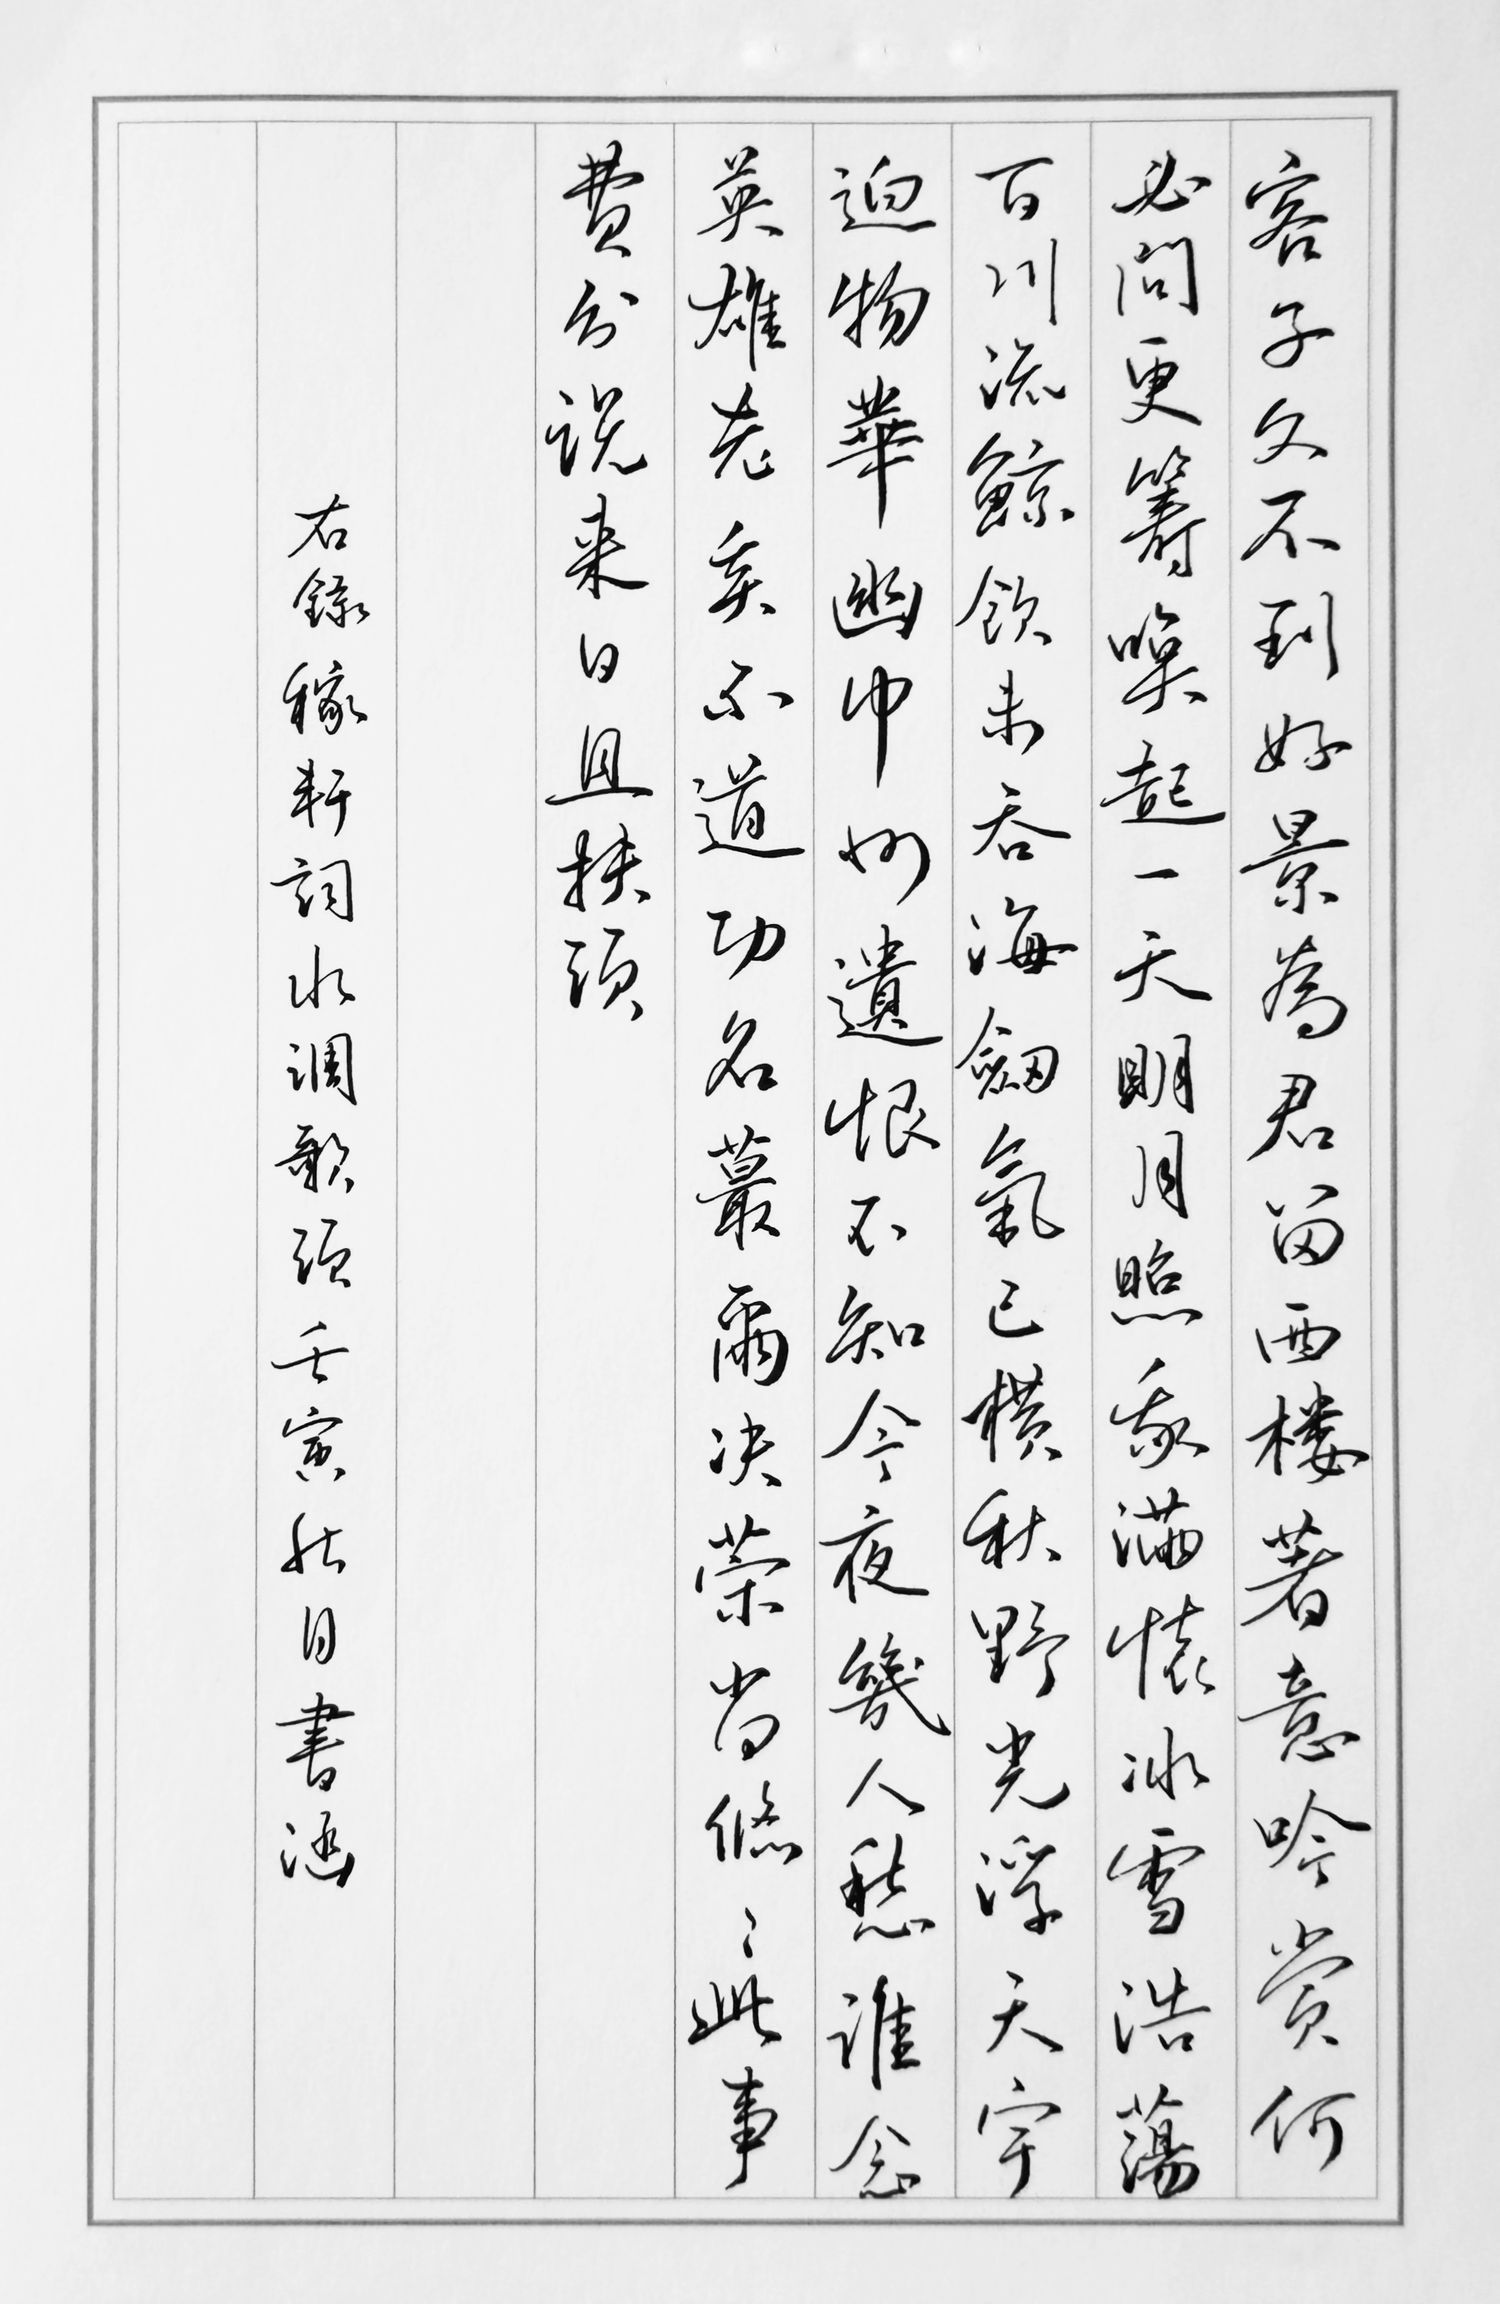 客子久不到好景為君留西楼著意吟賞何
必問更籌喚起一天明月照我滿懷冰雪浩蕩
百川流鯨飲未吞海劔氣已橫秋野光浮天宇
迥物華幽中州遺恨不知今夜幾人愁誰念
英雄老矣不道功名蕞爾决策尚悠〻此事
費分説来日且扶頭
右錄稼軒詞水調歌頭壬寅秋日書涵